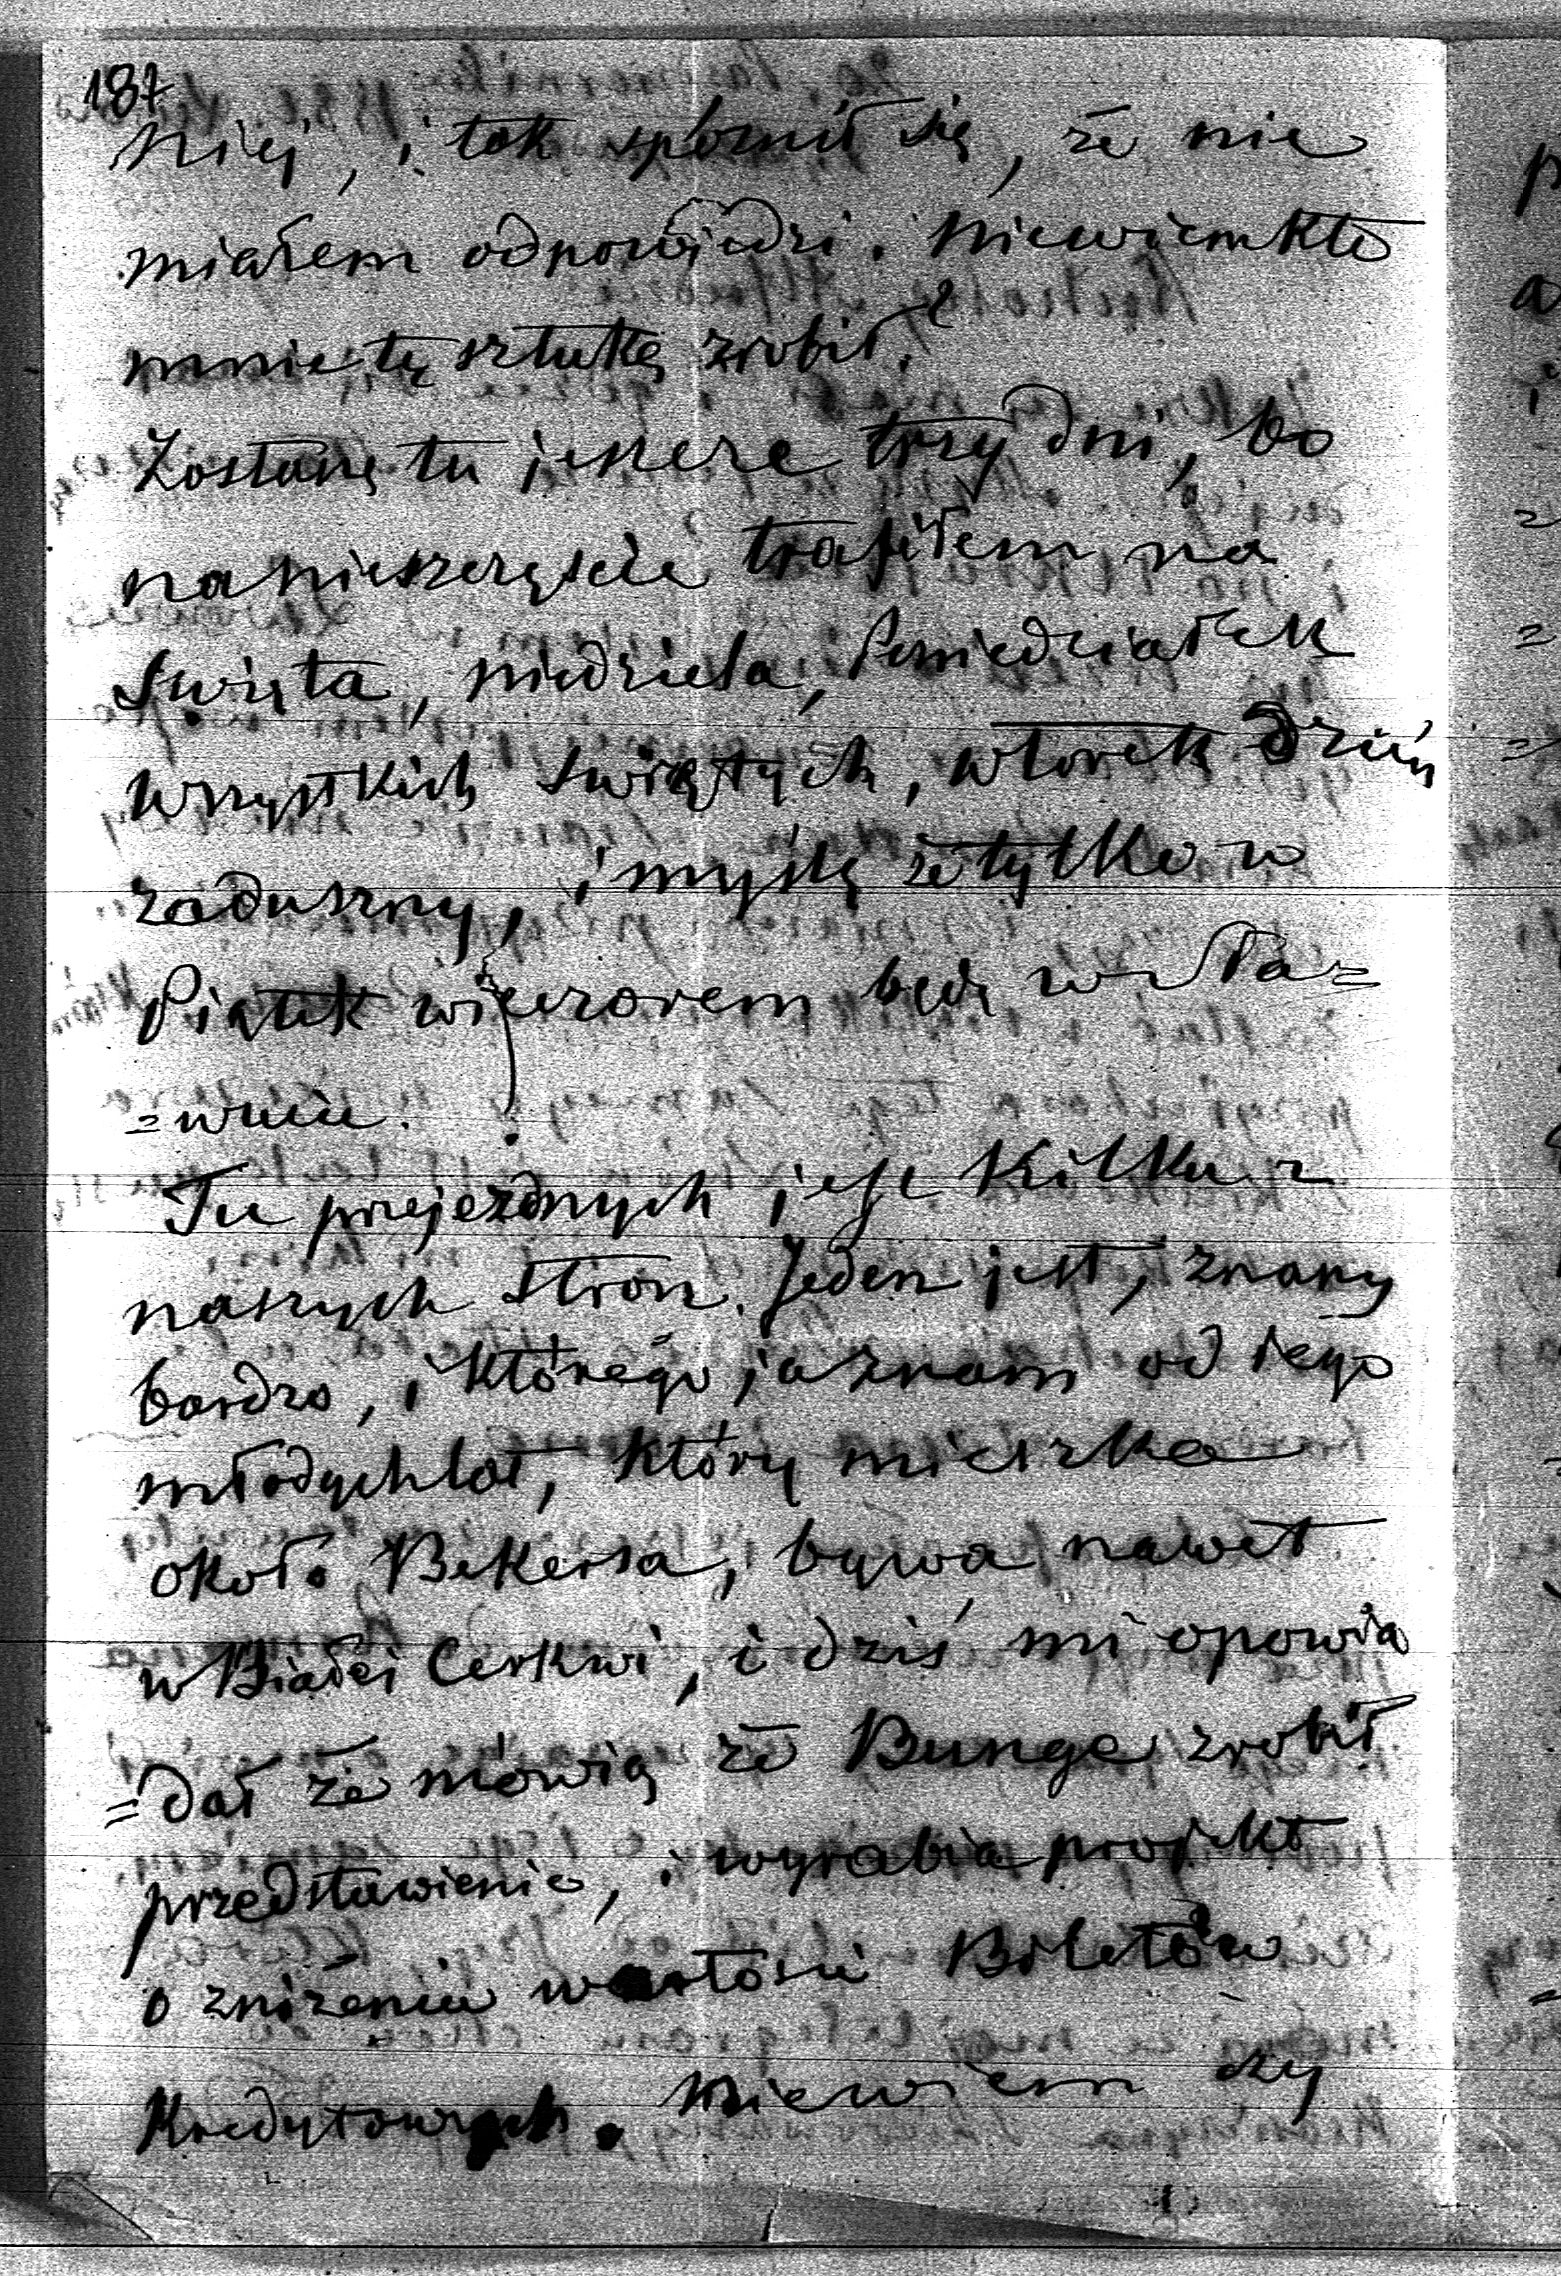 187
niej, i tak spóznił się, że nie
miałem odpowiedzi. Niewiem kto
mnie tę sztukę zrobił?
Zostanę tu jeszcze trzy dni, bo
na nieszczęście trafiłem na
Święta, niedziela, Poniedziałek
wszystkich Świętych, wtorek dzień
zaduszny, i myślę że tylko w
Piątek wieczorem będę w Sta=
=wnie.
Tu przejezdnych jest kilku z
naszych stron. Jeden jest, znany
bardzo, i którego ja znam od jego
młodych lat, który mieszka
około Bekersa, bywa nawet
w Białej Cerkwi, i dziś mi opowia
=dał że mówią że Bunge zrobił
przedstawienie, i wyrabia projekt
o zniżeniu wartości Biletów
Kredytowych. Niewiem czy